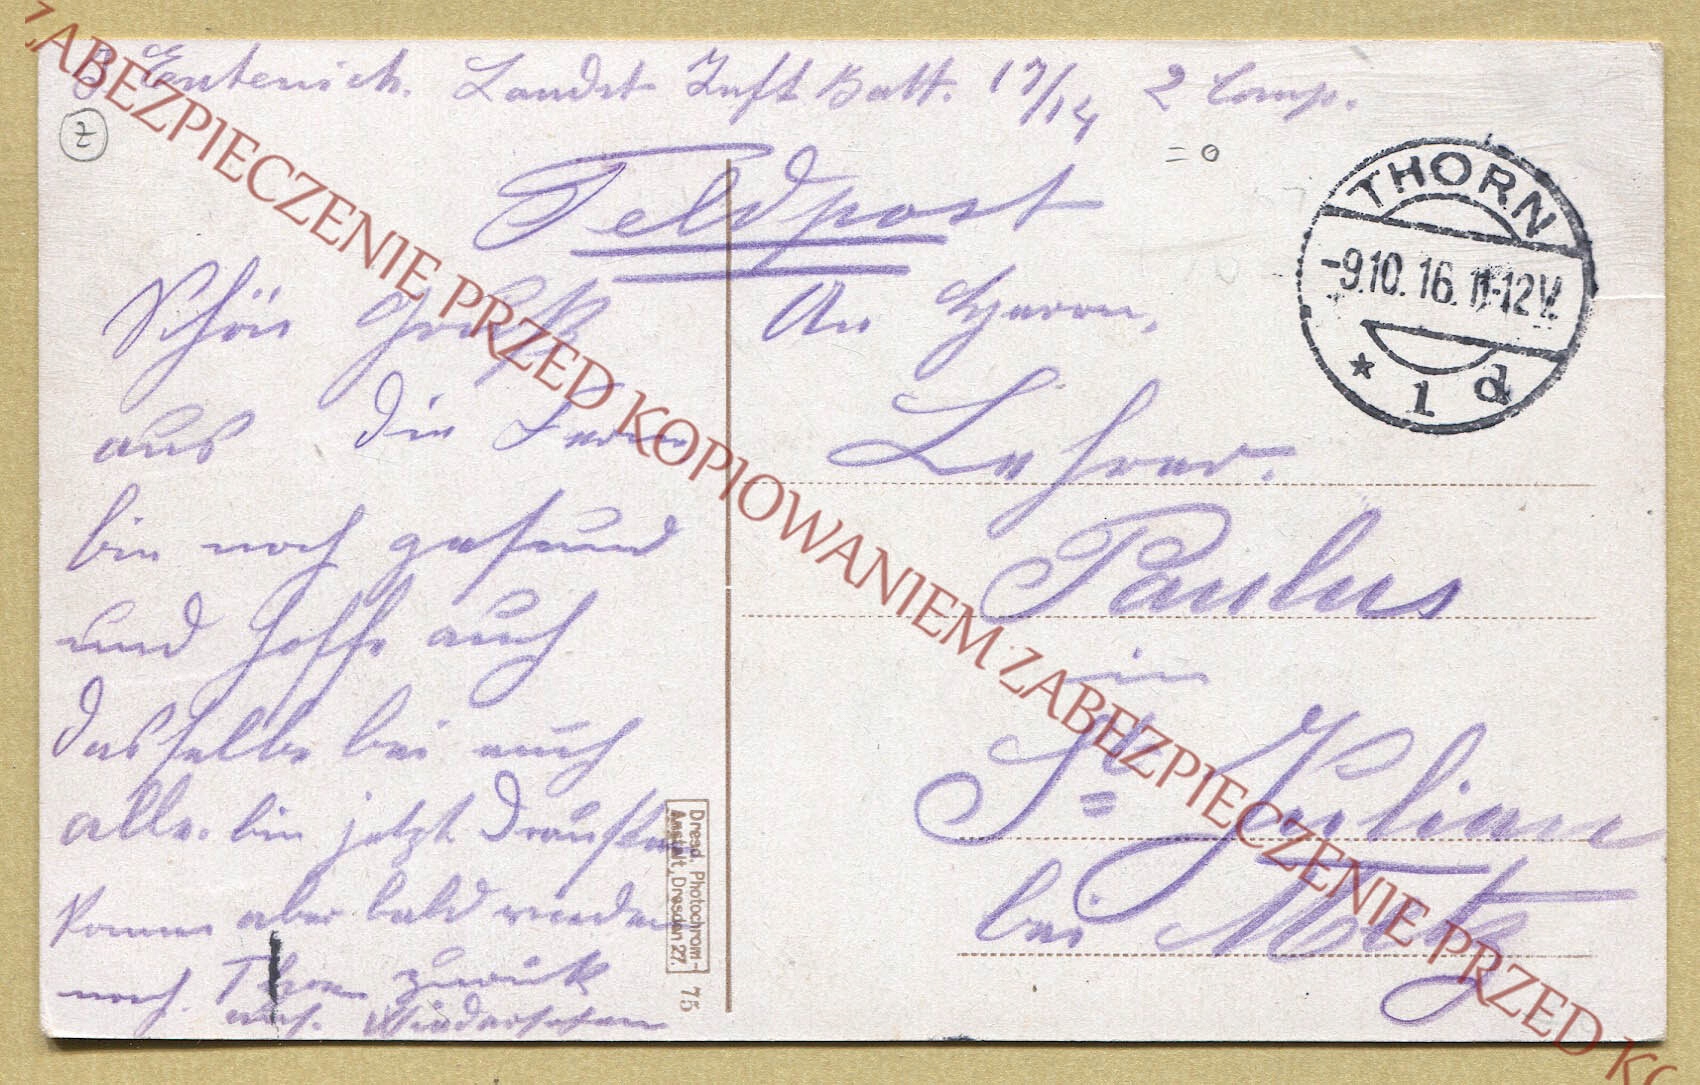 Landst Inft Batt. 17/14 2 Comp.
z
= 0
Feldpost
THORN
-9.10.16.11-12V.
* 1 d
Schön Gruß
aus die Ferne
bin noch gesund
und hoffe auch
dasselbe bei euch
alle. bin jetzt draußen
komme aber bald wieder
nach. Thorn zurück
auf. Wiedersehen
An Herrn,
Lehrer.
Paulus
in
St= Julian
bei Metz
Dresd. Photochrom-
Anstalt, Dresden 27.
75
ZABEZPIECZENIE PRZED KOPIOWANIEM ZABEZPIECZENIE PRZED KO